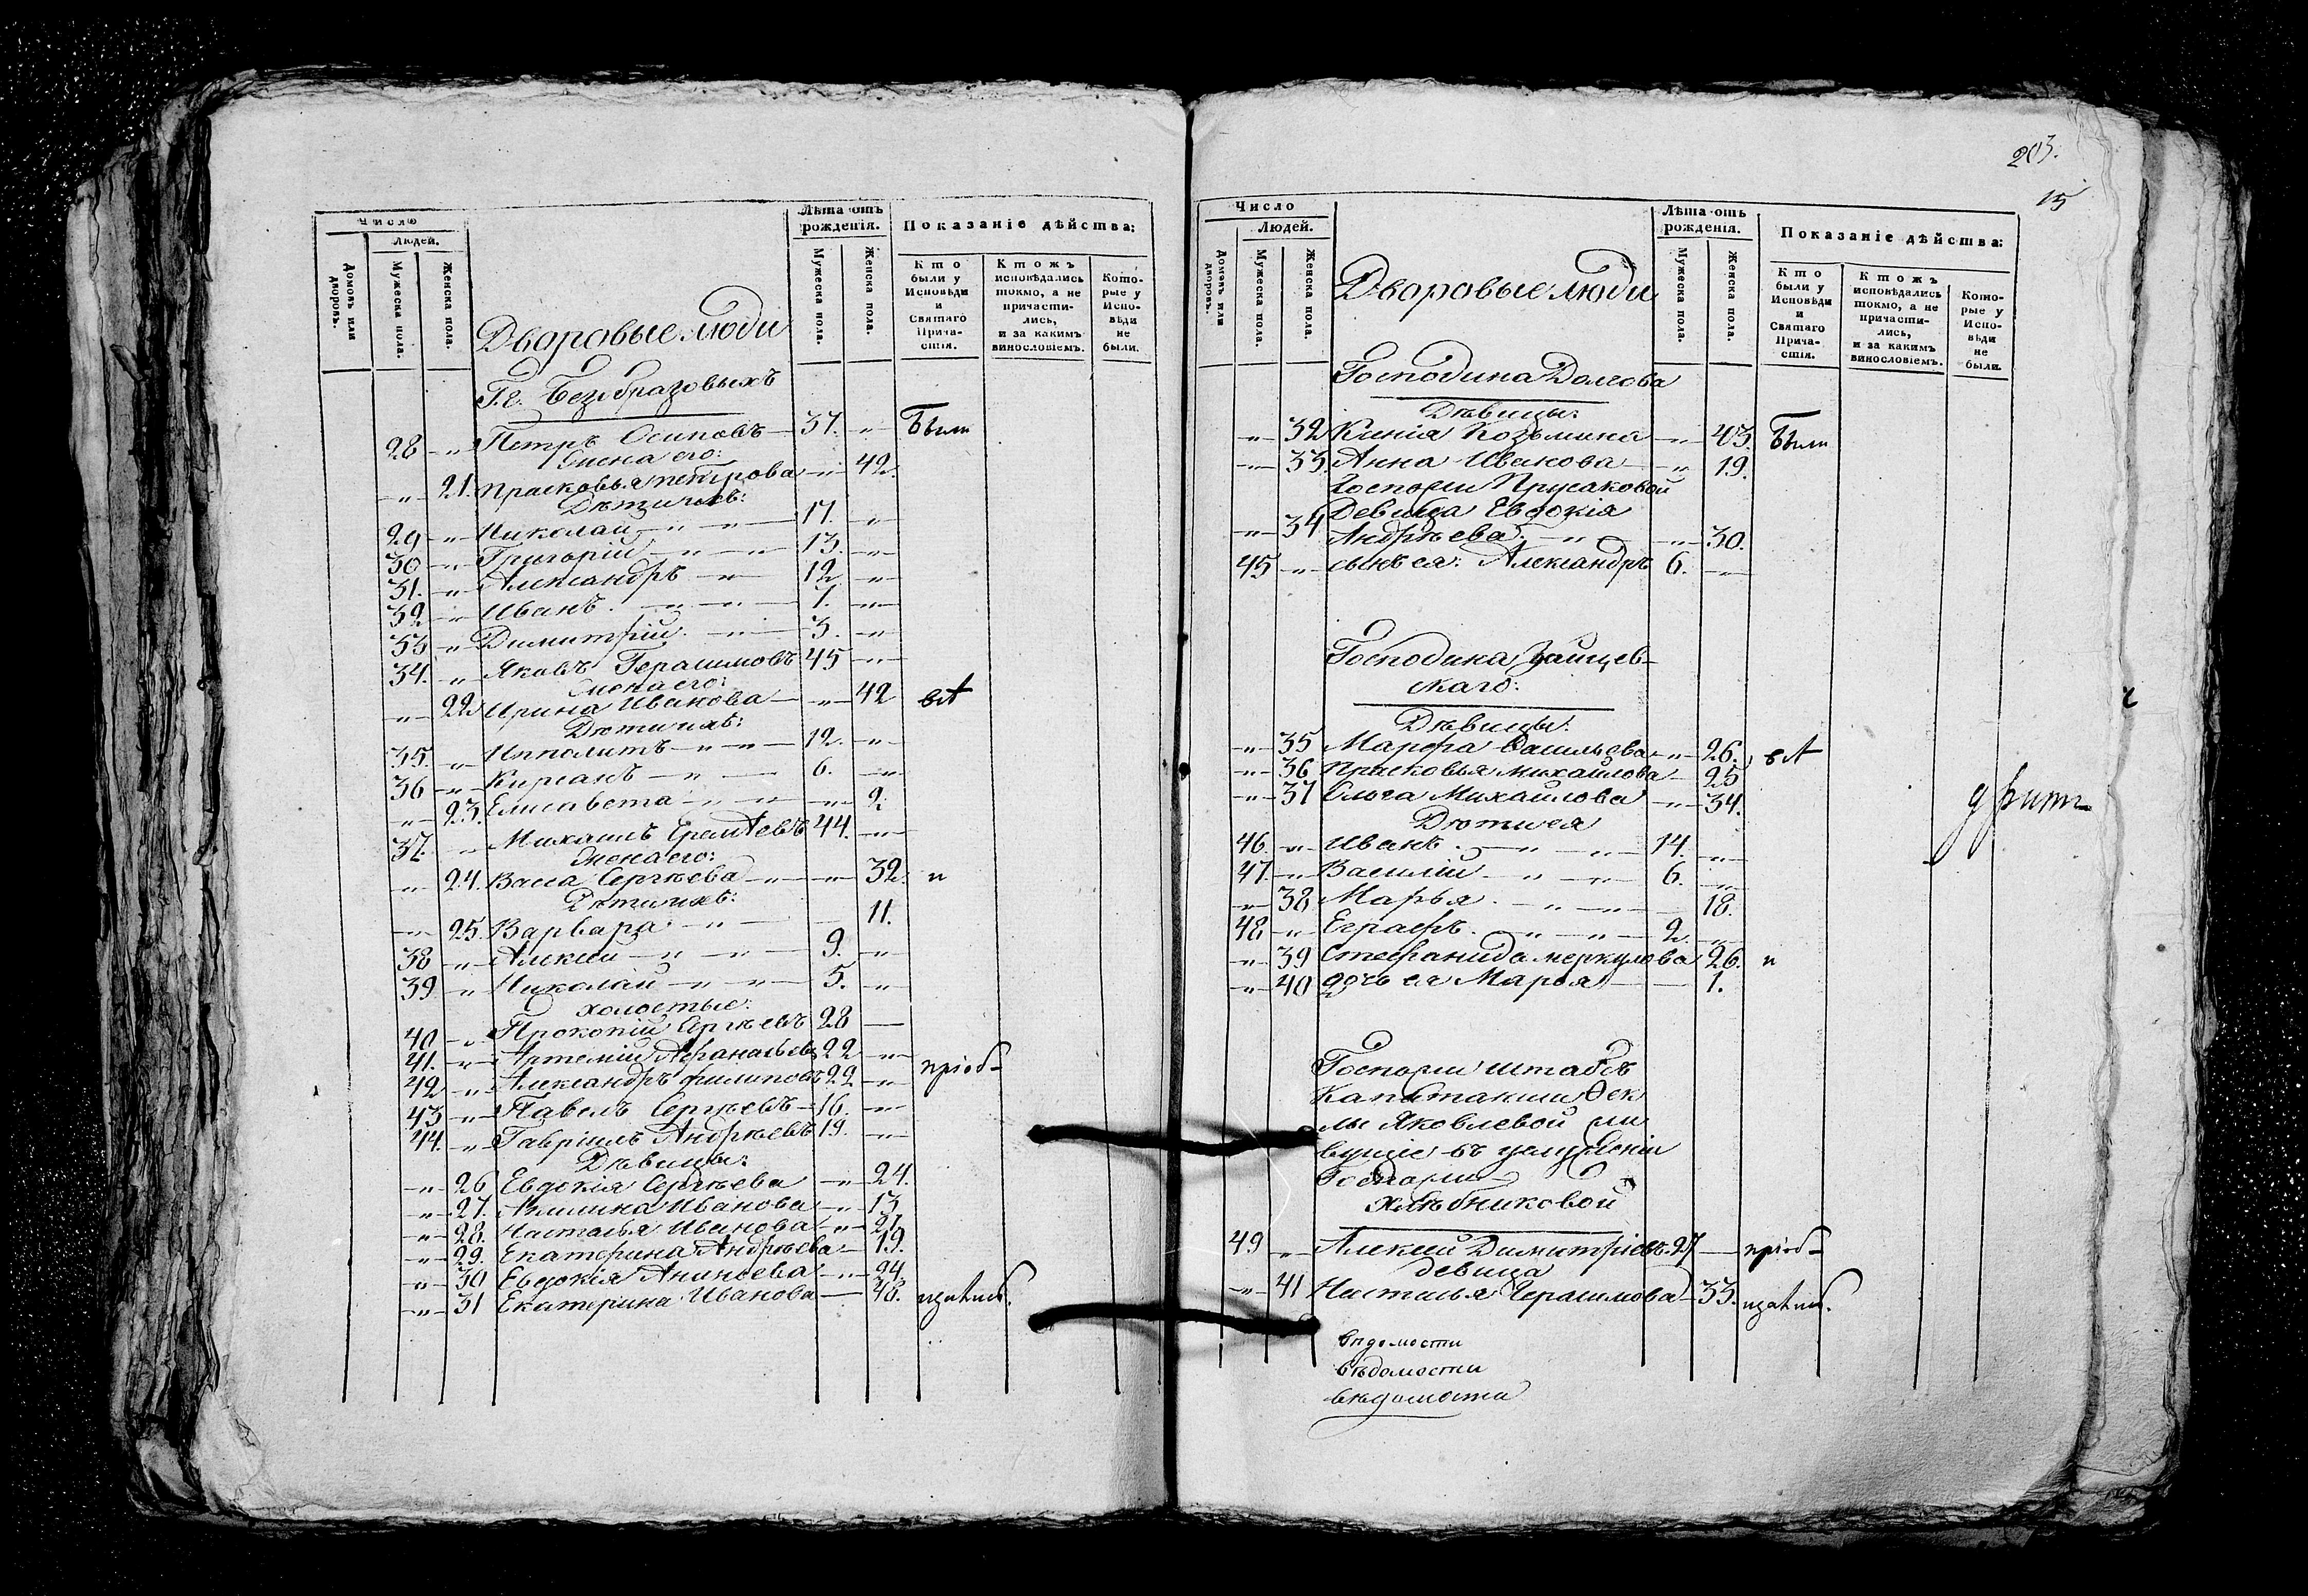 Число
Людей.
Домовъ или дворовъ.
Мужеска пола.
Женска пола.
Дворовые люди
Лѣта отъ рожденія.
Мужеска пола.
Женска пола.
Показаніе дѣйства:
Кто были у Исповѣди и Святаго Причастія.
Ктожъ исповѣдались токмо, а не причастились, и за какимъ винословіемъ.
Которые у Исповѣди не были.
Г.г. Безобразовыхъ
28 — „ Петръ Осиповъ — 37. „ Были
Жена его:
„ — 21. Прасковья Петрова — „ — 42.
Дѣти ихъ:
29 — „ Николай — „ — 17. — „
30 — „ Григорій — „ — „ 13. — „
31. — „ Александръ — „ — 12 — „
32 — „ Иванъ. — „ — „ 7. — „
33 — „ Димитрій. — „ — 3. — „
34. — „ Яковъ Герасимовъ 45 — „
Жена его:
„ — 22 Ирина Иванова — „ — 42
Дѣти ихъ:
35. — „ Ипполитъ — „ — „ 12. — „
36 — „ Кирсанъ — „ — 6. — „
„ — 23. Елисавета — „ — „ — 2
37. „ Михаилъ 44. — „
Жена его:
„ — 24. Васса Сергѣева — „ — 32. и
Дѣти ихъ:
„ — 25. Варвара — „ — 11.
38 — „ Алексѣй — „ — „ — 9. — „
39 — „ Николай — „ — „ — 5. — „
холостые:
40 — „ Прокопій Сергѣевъ 28 —
41. — „ Артемій Афанасьевъ 22 — „
42 — „ Александръ Филиповъ 22 — „ пріоб-
43 — „ Павелъ Сергѣевъ — 16. — „
44. — „ Гавріилъ Андрѣевъ 19. — „
Дѣвицы:
„ — 26 Евдокія Сергѣева — „ — 24.
„ — 27. Акилина Иванова — „ 13
„ — 28. Настасья Иванова — „ — 27
„ — 29. Екатерина Андрѣева — 19.
„ — 30 Евдокія — „ — 24
„ — 31 Екатерина Иванова — 48.
203.
15
Число
Людей.
Домовъ или дворовъ.
Мужеска пола.
Женска пола.
Дворовые люди
Лѣта отъ рожденія.
Мужеска пола.
Женска пола.
Показаніе дѣйства:
Кто были у Исповѣди и Святаго Причастія.
Ктожъ исповѣдались токмо, а не причастились, и за какимъ винословіемъ.
Которые у Исповѣди не были.
Господина Долгова
Дѣвицы:
„ — 32 Козьмина — „ — 43. Были
„ — 33. Анна Иванова — „ 19.
Госпожи Прусаковой
Девица Евдокія
„ — 34 Андрѣева. — „ — „ — 30.
45 — „ сынъ ея: Александръ 6. — „
Господина Зайцев-
скаго:
Дѣвицы:
„ — 35 Марфа Васильева — „ — 26.
„ — 36 Прасковья Михайлова — 25
„ — 37 Ольга Михайлова — „ — 34.
Дѣти ея
46. — „ Иванъ. — „ — „ — 14. — „
47. — „ Василій. — „ — „ — 6. — „
„ — 38 Марья. — „ — „ — 18.
48 — „ Еграфъ. — „ — „ — 2. — „
„ — 39 Стефанида Меркулова 26. и
„ — 40 дочь ея Марья — 1.
Госпожи Штабсъ
Капитанши Фек
лы Яковлевой жи
вущіе въ услуженіи
Госпожи
Хлѣбниковой
49 — „ Алексѣй Димитріевъ 27 — пріоб-
девица
„ — 41 Настасья Герасимова — 33.
вѣдомости
вѣдомости
вѣдомости